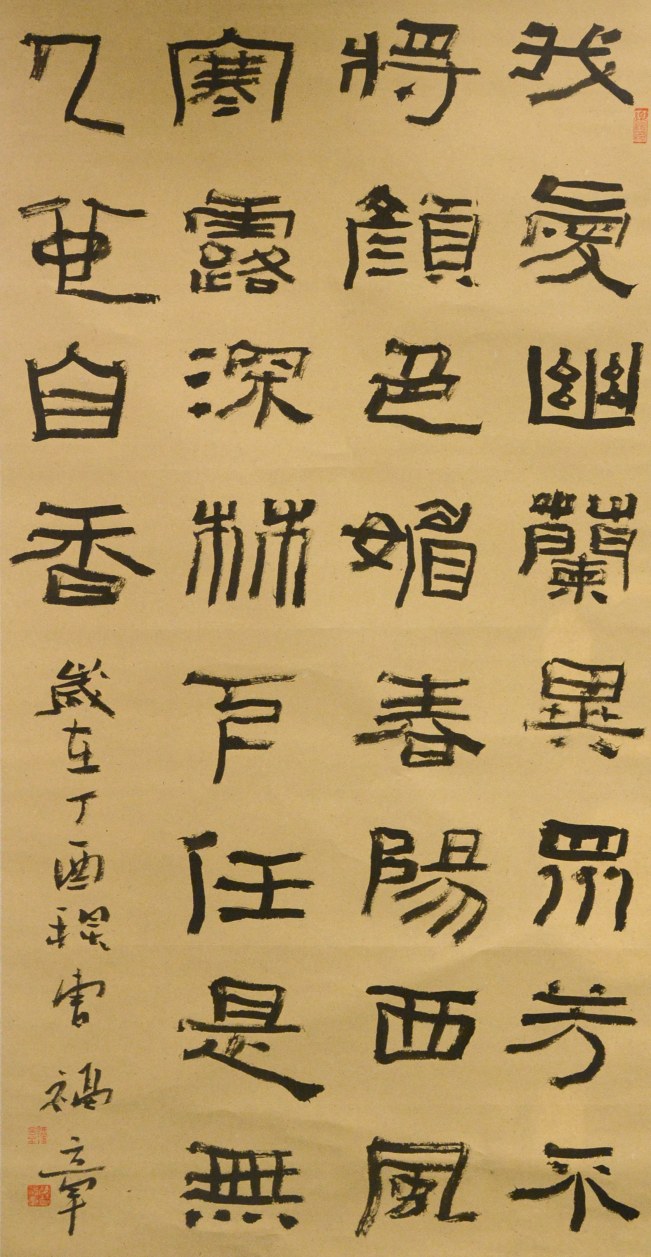 我愛幽蘭異眾芳不
將顏色媚春陽西風
寒露深林下任是無
人也自香
歲在丁酉 福章